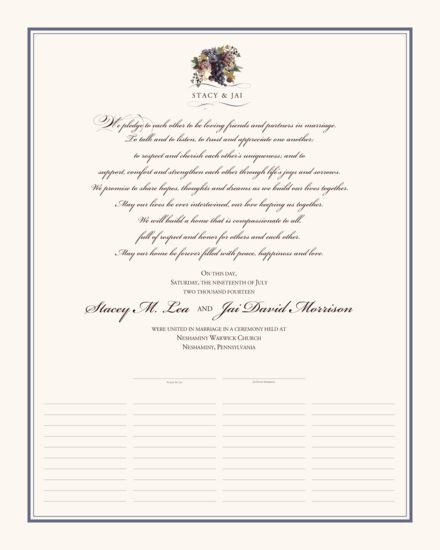 STACY & JAI
We pledge to each other to be loving friends and partners in marriage.
To talk and to listen, to trust and appreciate one another;
to respect and cherish each other's uniqueness; and to
support, comfort and strengthen each other through life's joys and sorrows.
We promise to share hopes, thoughts and dreams as we build our lives together.
May our lives be ever intertwined, our love keeping us together.
We will build a home that is compassionate to all,
full of respect and honor for others and each other.
May our home be forever filled with peace, happiness and love.
ON THIS DAY,
SATURDAY, THE NINETEENTH OF JULY
TWO THOUSAND FOURTEEN
Stacey M. Lea AND Jai David Morrison
WERE UNITED IN MARRIAGE IN A CEREMONY HELD AT
NESHAMINY WARWICK CHURCH
NESHAMINY, PENNSYLVANIA